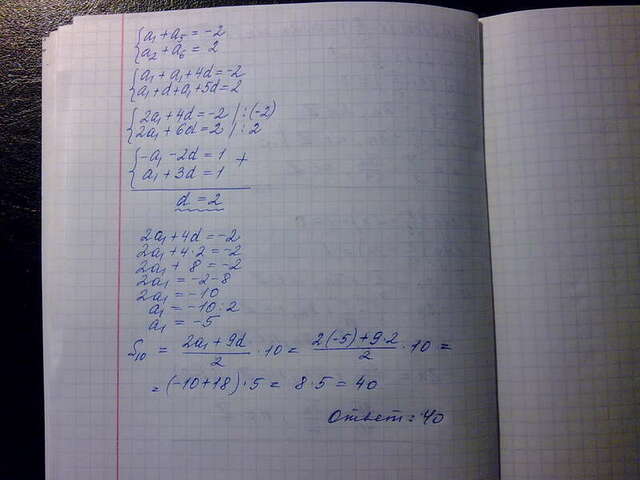 {a₁ + a₅ = -2
{a₂ + a₆ = 2
{a₁ + a₁ + 4d = -2
{a₁ + d + a₁ + 5d = 2
{2a₁ + 4d = -2 | : (-2)
{2a₁ + 6d = 2 | : 2
{-a₁ - 2d = 1 +
{a₁ + 3d = 1
d = 2
2a₁ + 4d = -2
2a₁ + 4·2 = -2
2a₁ + 8 = -2
2a₁ = -2-8
2a₁ = -10
a₁ = -10 : 2
a₁ = -5
S₁₀ = (2a₁ + 9d)/2 · 10 = (2(-5) + 9·2)/2 · 10 =
= (-10+18)·5 = 8·5 = 40
Ответ: 40